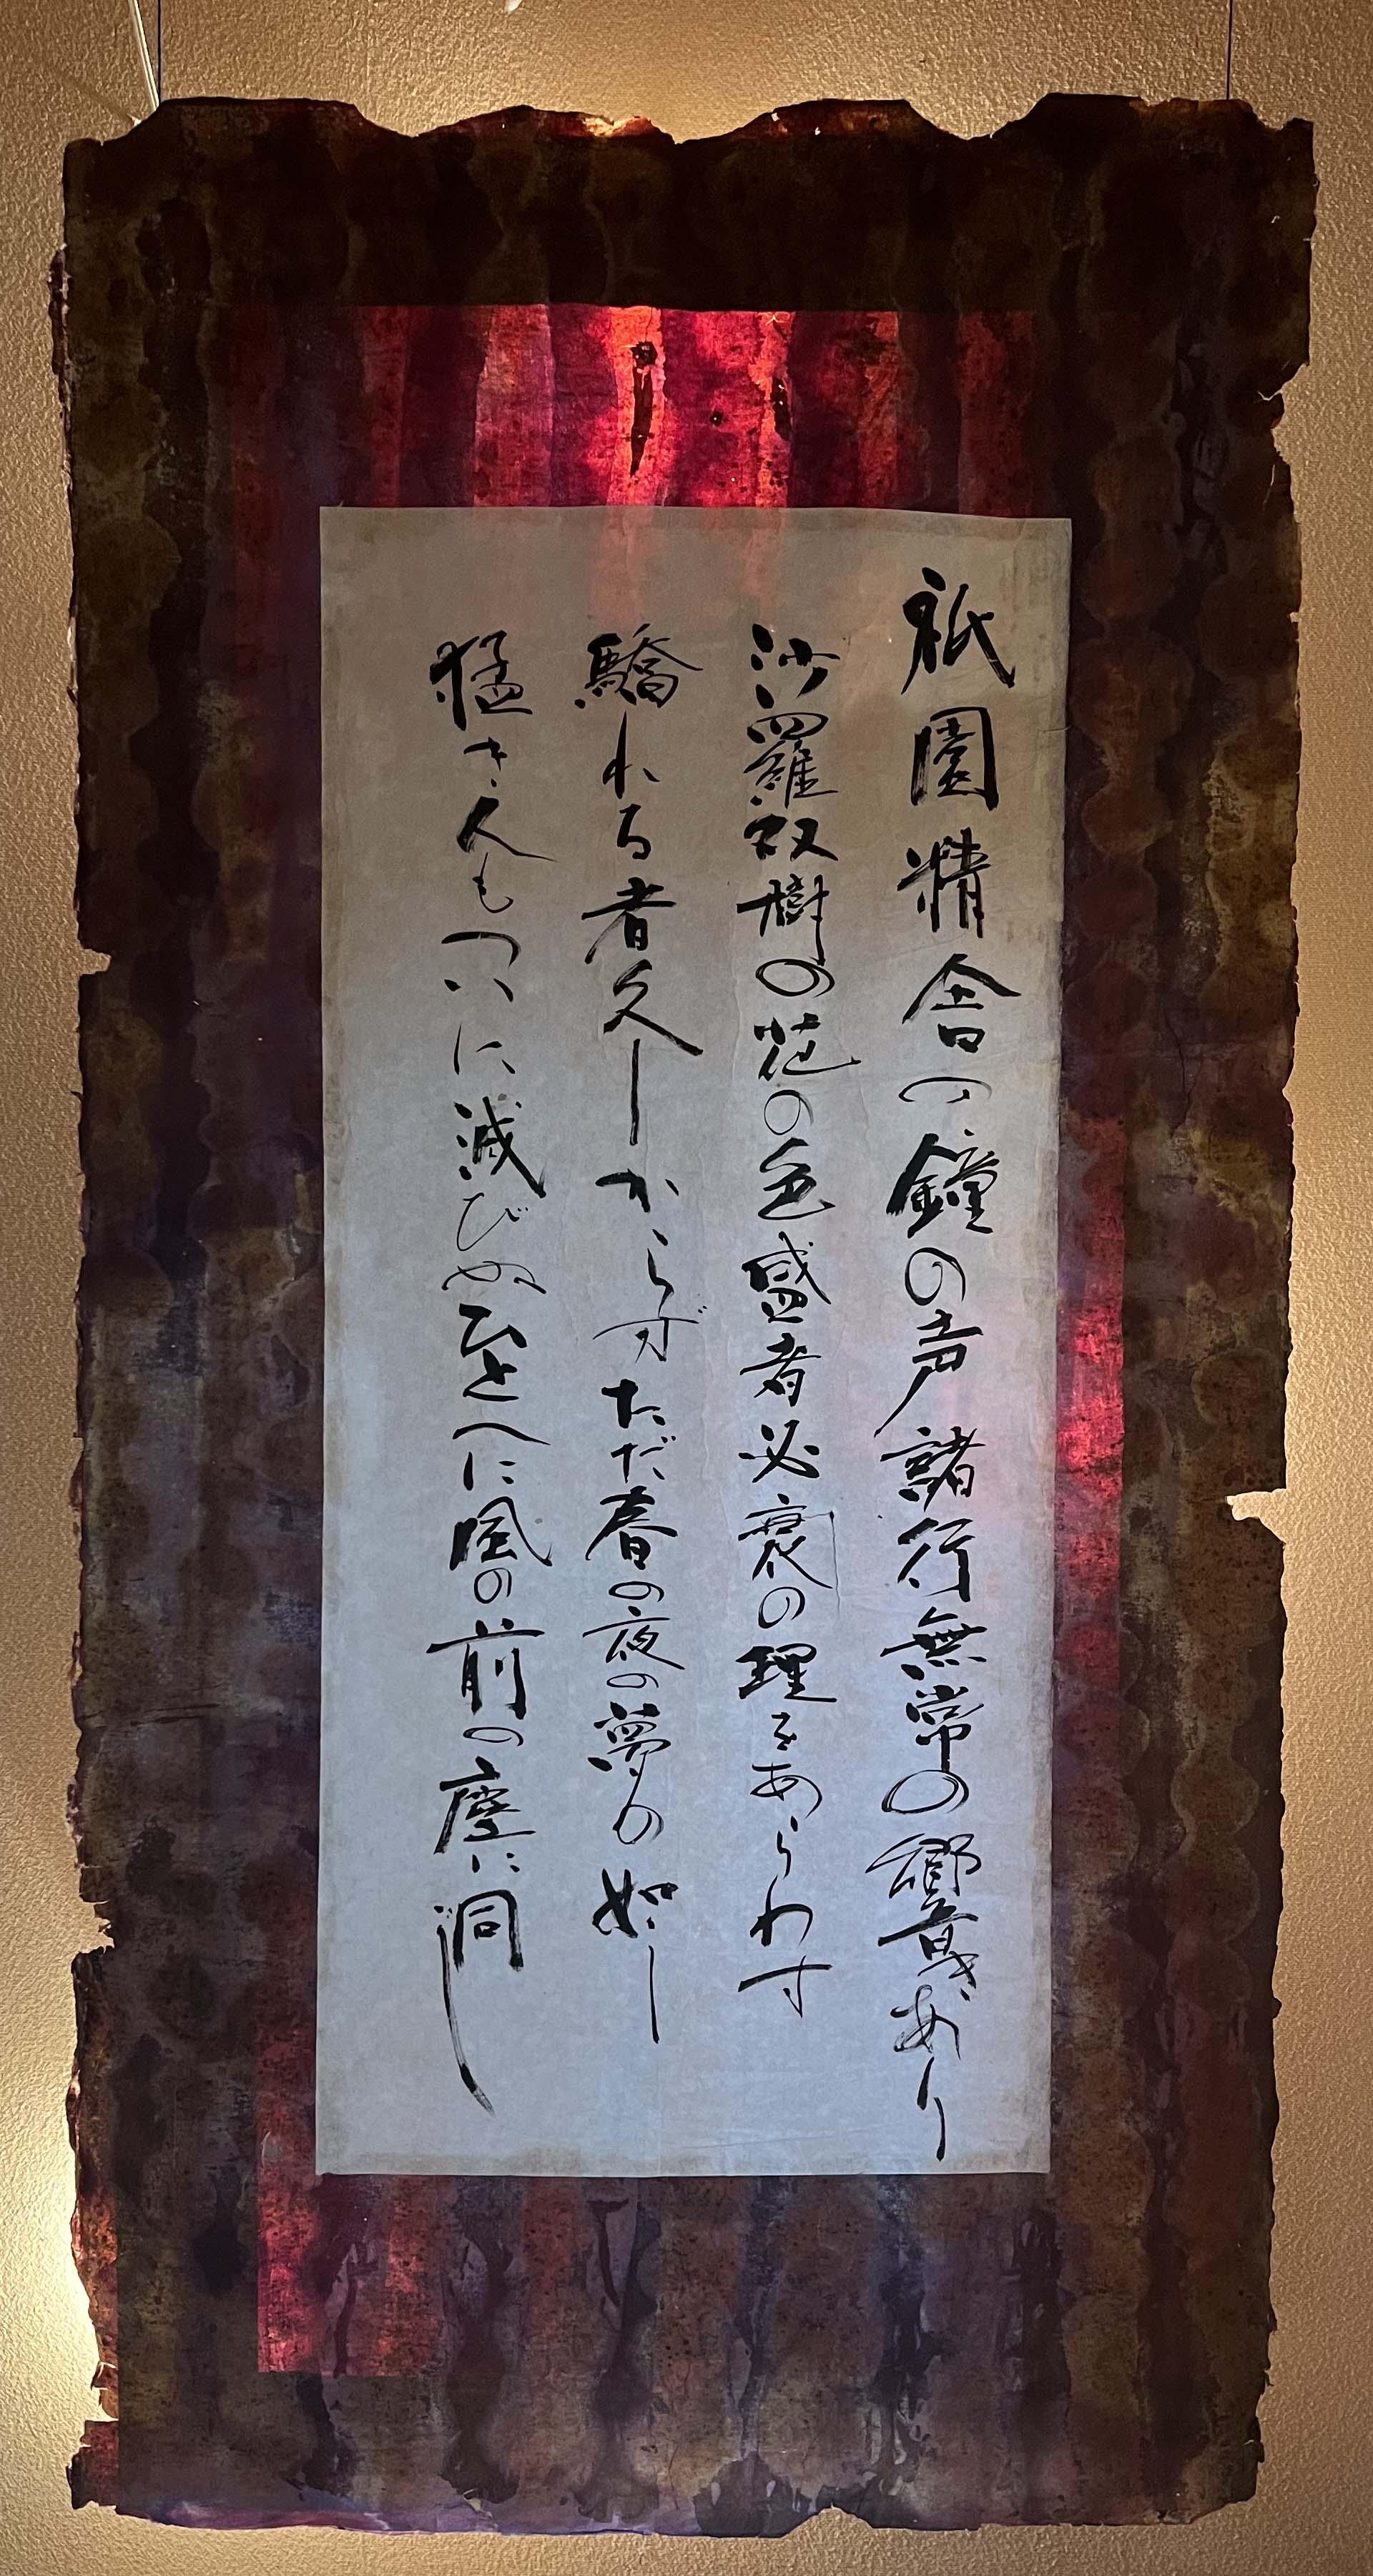 祇園精舎の鐘の声諸行無常の響きあり
沙羅双樹の花の色盛者必衰の理をあらわす
驕れる者久しからずただ春の夜の夢の如し
猛き人もついに滅びぬひとへに風の前の塵に同じ